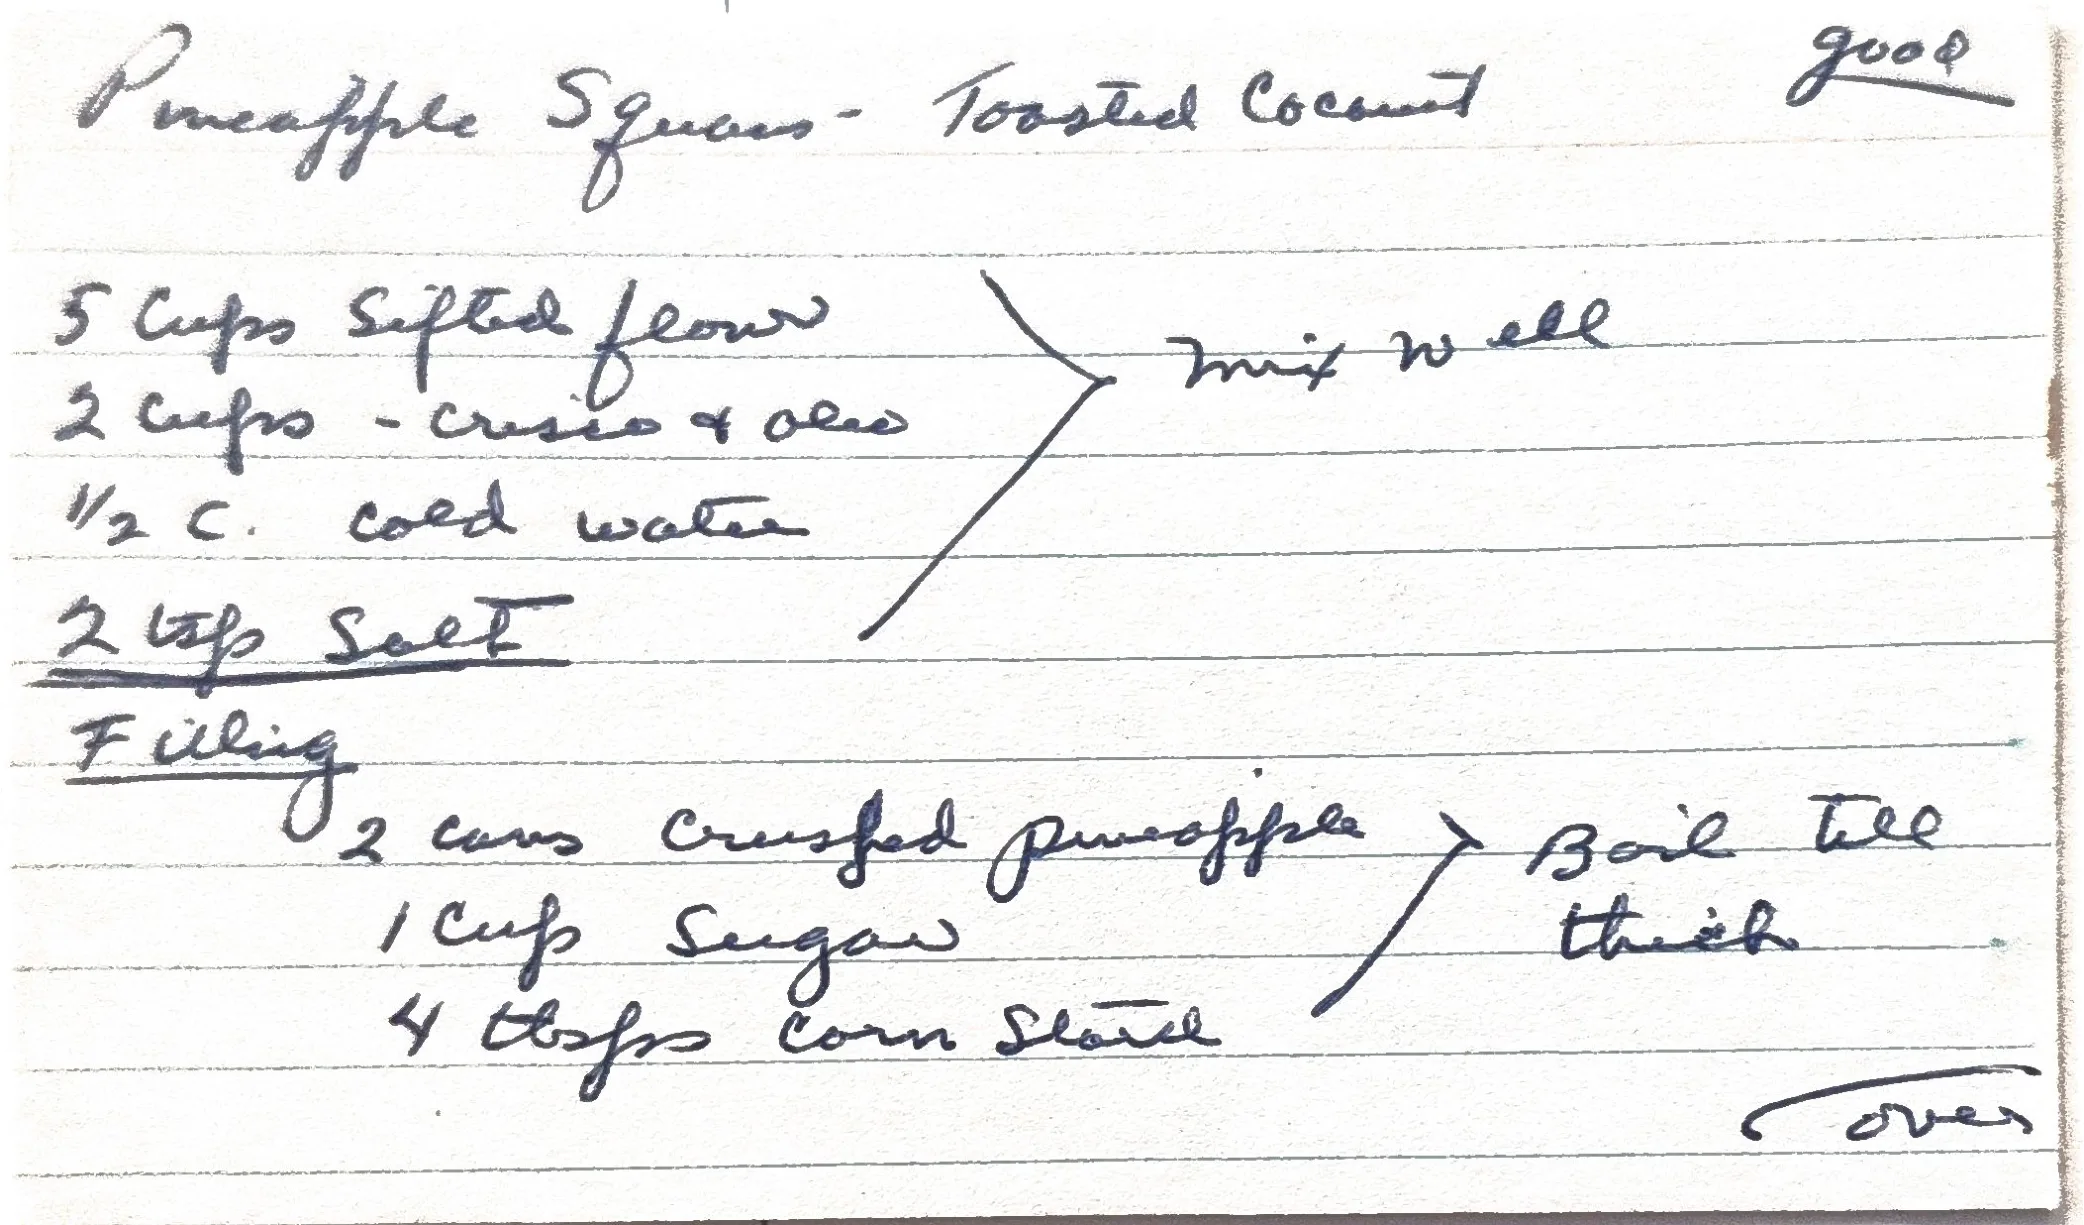 good
Pineapple Squares - Toasted Coconut
5 Cups Sifted flour
2 Cups - Crisco & oleo
Mix Well
1/2 C. cold water
2 tsp Salt
Filling
2 cans Crushed pineapple
Boil till
thick
1 Cup Sugar
4 tbsps Corn Starch
over